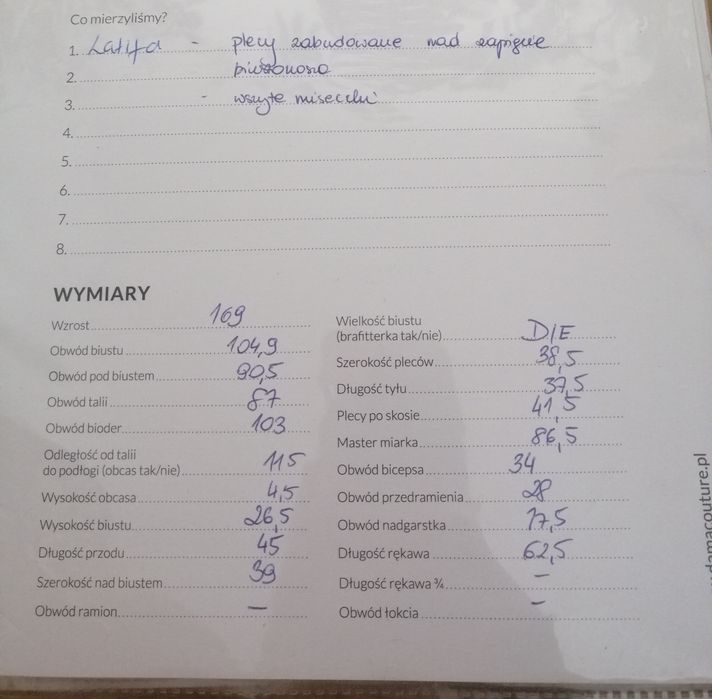 Co mierzyliśmy?
1. Latifa - plecy zabudowane nad zapięcie
2. biustonosza
3. - wszyte miseczki
4.
5.
6.
7.
8.
WYMIARY
Wzrost 169
Obwód biustu 104,9
Obwód pod biustem 90,5
Obwód talii 87
Obwód bioder 103
Odległość od talii
do podłogi (obcas tak/nie) 115
Wysokość obcasa 4,5
Wysokość biustu 26,5
Długość przodu 45
Szerokość nad biustem 39
Obwód ramion —
Wielkość biustu
(brafitterka tak/nie) D/E
Szerokość pleców 38,5
Długość tyłu 37,5
Plecy po skosie 41,5
Master miarka 86,5
Obwód bicepsa 34
Obwód przedramienia 28
Obwód nadgarstka 17,5
Długość rękawa 62,5
Długość rękawa ¾ —
Obwód łokcia —
damacouture.pl